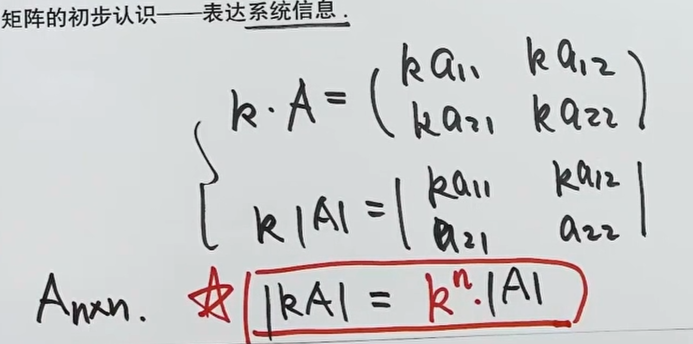 矩阵的初步认识——表达系统信息.
k·A = ( ka₁₁ ka₁₂
ka₂₁ ka₂₂ )
k|A| = | ka₁₁ ka₁₂
a₂₁ a₂₂ |
Aₙₓₙ. ☆ |kA| = kⁿ·|A|